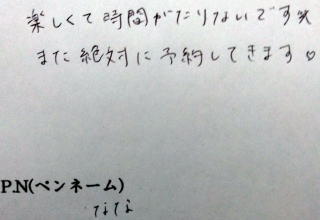 楽しくて時間がたりないです
また絶対に予約してきます♡
P.N(ペンネーム)
なな